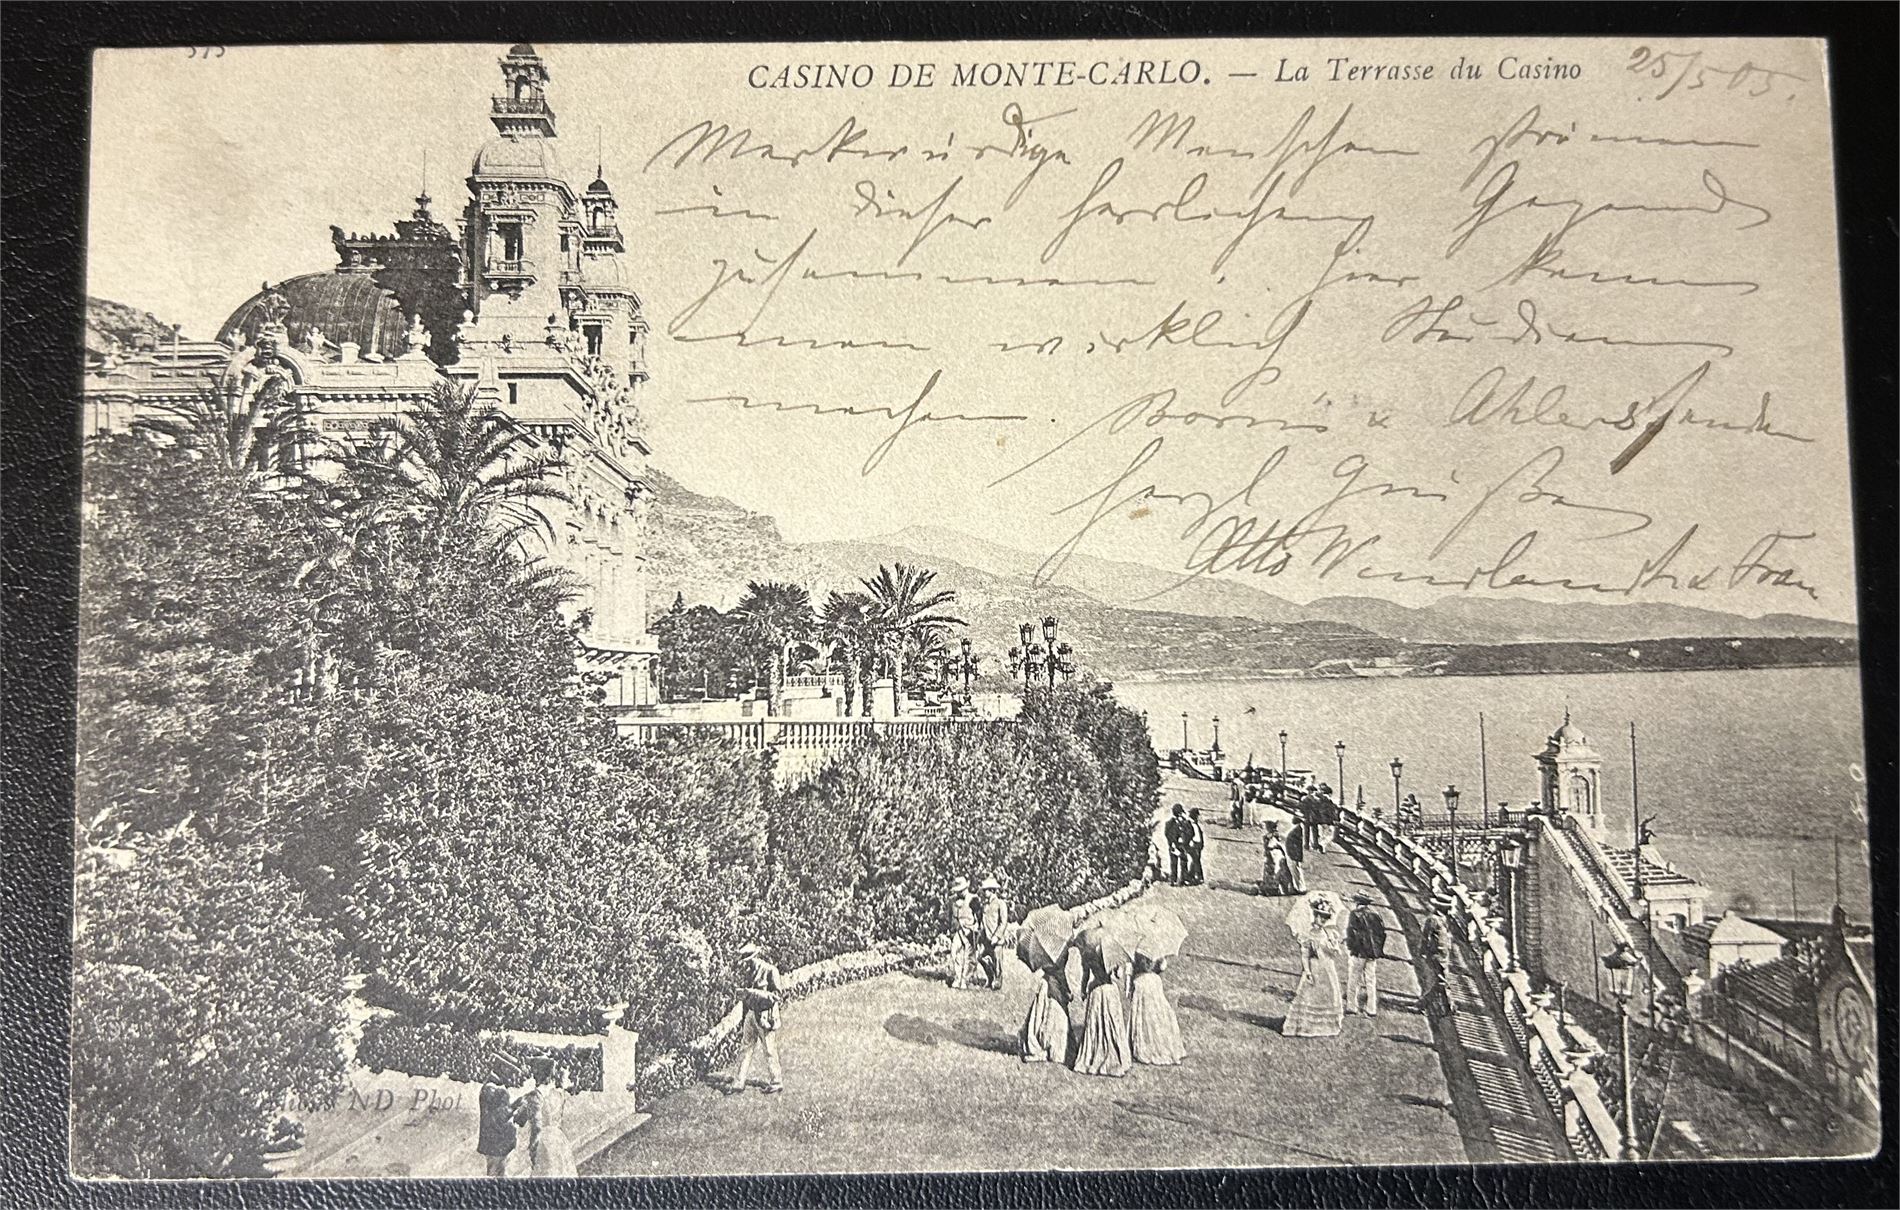 CASINO DE MONTE-CARLO. — La Terrasse du Casino
25/5 05.
Merkwürdige Menschen strömen
in dieser herrlichen Gegend
zusammen. Hier kann
man wirklich Studien
machen. & Ahlers senden
herzl Grüße
Otto & Frau
ND Phot